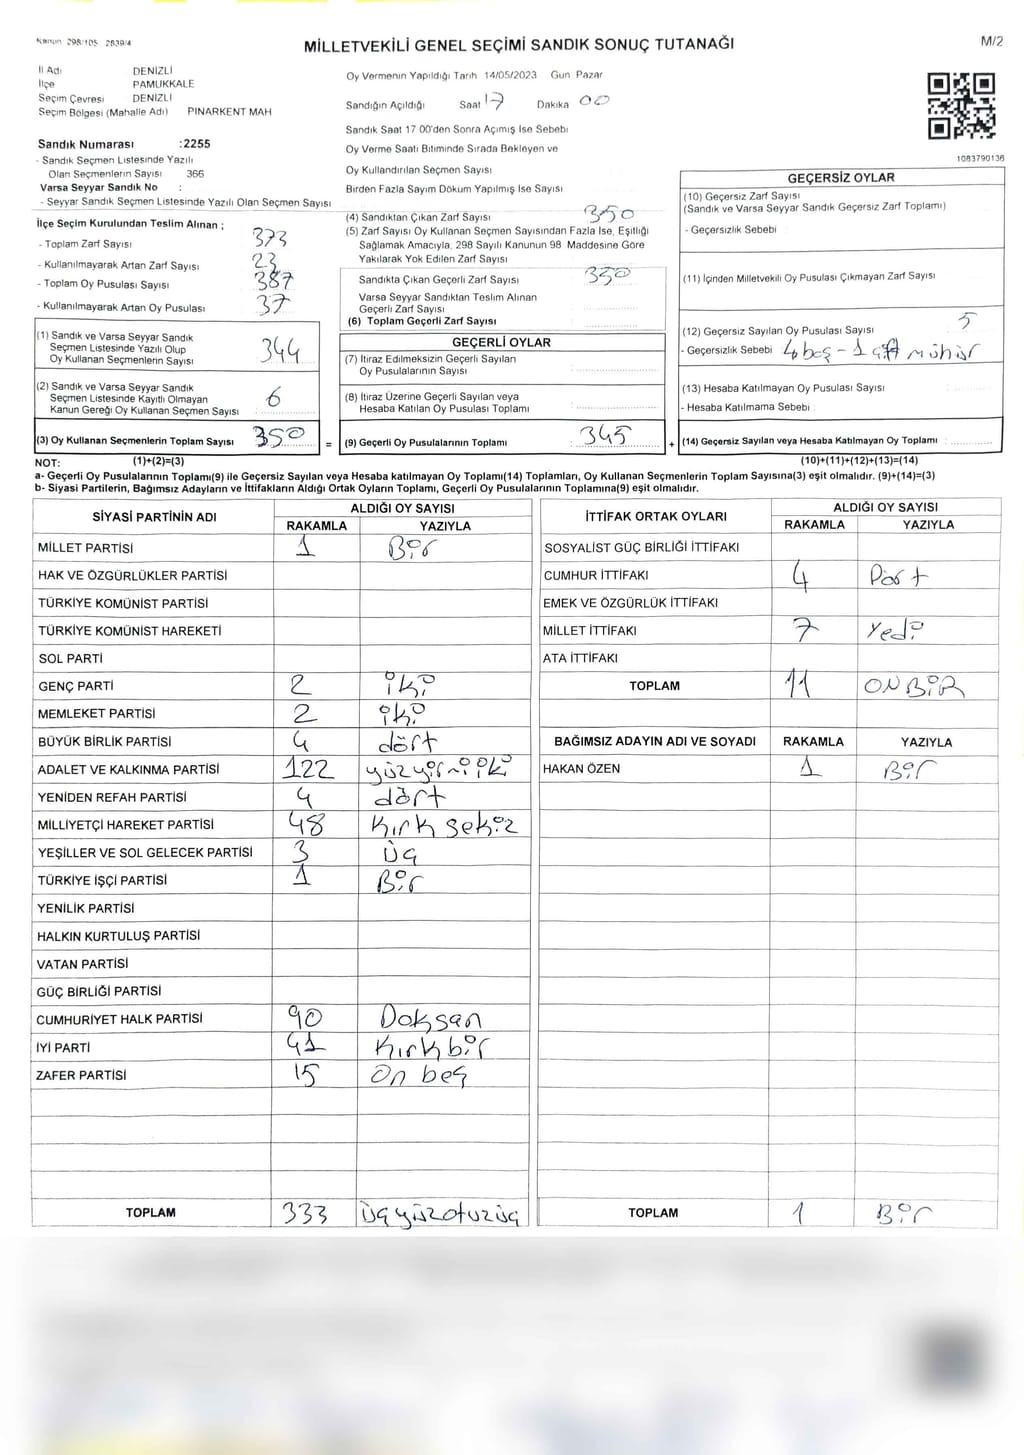 Kanun 298/105 2839/4
MİLLETVEKİLİ GENEL SEÇİMİ SANDIK SONUÇ TUTANAĞI
M/2
İl Adı DENİZLİ
İlçe PAMUKKALE
Seçim Çevresi DENİZLİ
Seçim Bölgesi (Mahalle Adı) PINARKENT MAH
Sandık Numarası :2255
- Sandık Seçmen Listesinde Yazılı
Olan Seçmenlerin Sayısı 366
Varsa Seyyar Sandık No :
- Seyyar Sandık Seçmen Listesinde Yazılı Olan Seçmen Sayısı
Oy Vermenin Yapıldığı Tarih 14/05/2023 Gün Pazar
Sandığın Açıldığı Saat 17 Dakika 00
Sandık Saat 17 00'den Sonra Açımış İse Sebebi
Oy Verme Saati Bitiminde Sırada Bekleyen ve
Oy Kullandırılan Seçmen Sayısı
Birden Fazla Sayım Döküm Yapılmış İse Sayısı
1083790136
İlçe Seçim Kurulundan Teslim Alınan ;
- Toplam Zarf Sayısı 373
- Kullanılmayarak Artan Zarf Sayısı 23
- Toplam Oy Pusulası Sayısı 387
- Kullanılmayarak Artan Oy Pusulası 37
(1) Sandık ve Varsa Seyyar Sandık
Seçmen Listesinde Yazılı Olup
Oy Kullanan Seçmenlerin Sayısı 344
(2) Sandık ve Varsa Seyyar Sandık
Seçmen Listesinde Kayıtlı Olmayan
Kanun Gereği Oy Kullanan Seçmen Sayısı 6
(3) Oy Kullanan Seçmenlerin Toplam Sayısı 350 =
(4) Sandıktan Çıkan Zarf Sayısı 350
(5) Zarf Sayısı Oy Kullanan Seçmen Sayısından Fazla İse, Eşitliği
Sağlamak Amacıyla, 298 Sayılı Kanunun 98 Maddesine Göre
Yakılarak Yok Edilen Zarf Sayısı
Sandıkta Çıkan Geçerli Zarf Sayısı 350
Varsa Seyyar Sandıktan Teslim Alınan
Geçerli Zarf Sayısı
(6) Toplam Geçerli Zarf Sayısı
GEÇERLİ OYLAR
(7) İtiraz Edilmeksizin Geçerli Sayılan
Oy Pusulalarının Sayısı
(8) İtiraz Üzerine Geçerli Sayılan veya
Hesaba Katılan Oy Pusulası Toplamı
(9) Geçerli Oy Pusulalarının Toplamı : 345 +
GEÇERSİZ OYLAR
(10) Geçersiz Zarf Sayısı
(Sandık ve Varsa Seyyar Sandık Geçersiz Zarf Toplamı)
- Geçersizlik Sebebi
(11) İçinden Milletvekili Oy Pusulası Çıkmayan Zarf Sayısı
(12) Geçersiz Sayılan Oy Pusulası Sayısı 5
- Geçersizlik Sebebi 4 boş - 1 çift mühür
(13) Hesaba Katılmayan Oy Pusulası Sayısı
- Hesaba Katılmama Sebebi
(14) Geçersiz Sayılan veya Hesaba Katılmayan Oy Toplamı :
NOT: (1)+(2)=(3) (10)+(11)+(12)+(13)=(14)
a- Geçerli Oy Pusulalarının Toplamı(9) ile Geçersiz Sayılan veya Hesaba katılmayan Oy Toplamı(14) Toplamları, Oy Kullanan Seçmenlerin Toplam Sayısına(3) eşit olmalıdır. (9)+(14)=(3)
b- Siyasi Partilerin, Bağımsız Adayların ve İttifakların Aldığı Ortak Oyların Toplamı, Geçerli Oy Pusulalarının Toplamına(9) eşit olmalıdır.
SİYASİ PARTİNİN ADI ALDIĞI OY SAYISI
RAKAMLA YAZIYLA
MİLLET PARTİSİ 1 Bir
HAK VE ÖZGÜRLÜKLER PARTİSİ
TÜRKİYE KOMÜNİST PARTİSİ
TÜRKİYE KOMÜNİST HAREKETİ
SOL PARTİ
GENÇ PARTİ 2 iki
MEMLEKET PARTİSİ 2 iki
BÜYÜK BİRLİK PARTİSİ 4 dört
ADALET VE KALKINMA PARTİSİ 122 yüzyirmiiki
YENİDEN REFAH PARTİSİ 4 dört
MİLLİYETÇİ HAREKET PARTİSİ 48 Kırk sekiz
YEŞİLLER VE SOL GELECEK PARTİSİ 3 üç
TÜRKİYE İŞÇİ PARTİSİ 1 Bir
YENİLİK PARTİSİ
HALKIN KURTULUŞ PARTİSİ
VATAN PARTİSİ
GÜÇ BİRLİĞİ PARTİSİ
CUMHURİYET HALK PARTİSİ 90 Doksan
İYİ PARTİ 41 Kırk bir
ZAFER PARTİSİ 15 On beş
TOPLAM 333 üçyüzotuzüç
İTTİFAK ORTAK OYLARI ALDIĞI OY SAYISI
RAKAMLA YAZIYLA
SOSYALİST GÜÇ BİRLİĞİ İTTİFAKI
CUMHUR İTTİFAKI 4 Dört
EMEK VE ÖZGÜRLÜK İTTİFAKI
MİLLET İTTİFAKI 7 Yedi
ATA İTTİFAKI
TOPLAM 11 ONBİR
BAĞIMSIZ ADAYIN ADI VE SOYADI RAKAMLA YAZIYLA
HAKAN ÖZEN 1 Bir
TOPLAM 1 Bir